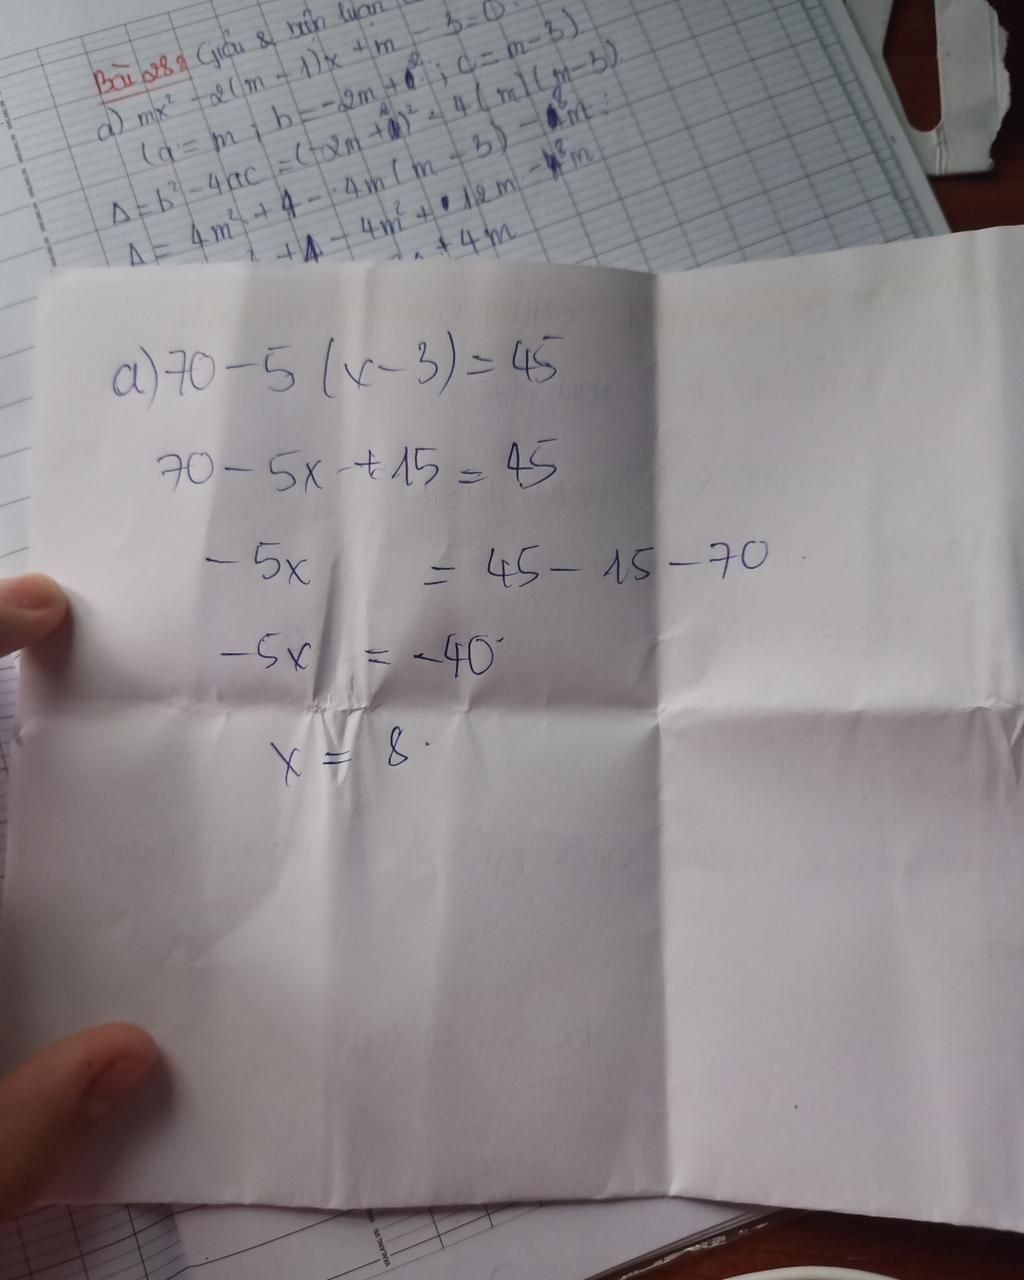 Bài 28: Giải & biện luận
a) mx² - 2(m - 1)x + m - 3 = 0.
(a = m ; b = -2m + 2 ; c = m - 3)
Δ = b² - 4ac = (-2m + 2)² - 4(m)(m - 3)
Δ = 4m² + 4 - 4m(m - 3) - 8m
+ 4 - 4m² + 12m - 8m
+ 4m
a) 70 - 5 (x - 3) = 45
70 - 5x + 15 = 45
- 5x = 45 - 15 - 70
- 5x = - 40
x = 8.
VANLANG.VN